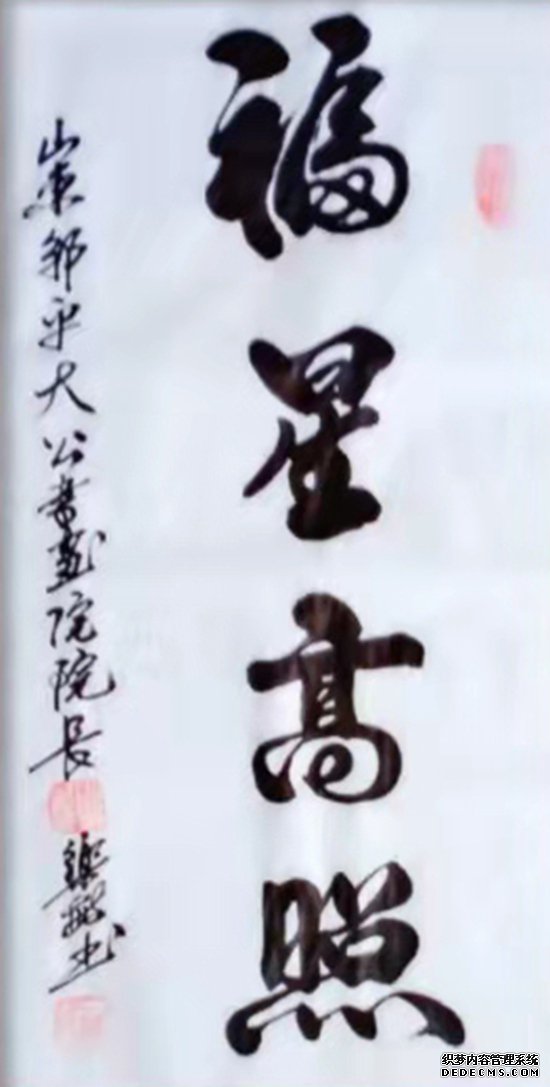 福星高照
山东邹平大公書画院院長
书
织梦内容管理系统
DEDECMS.COM